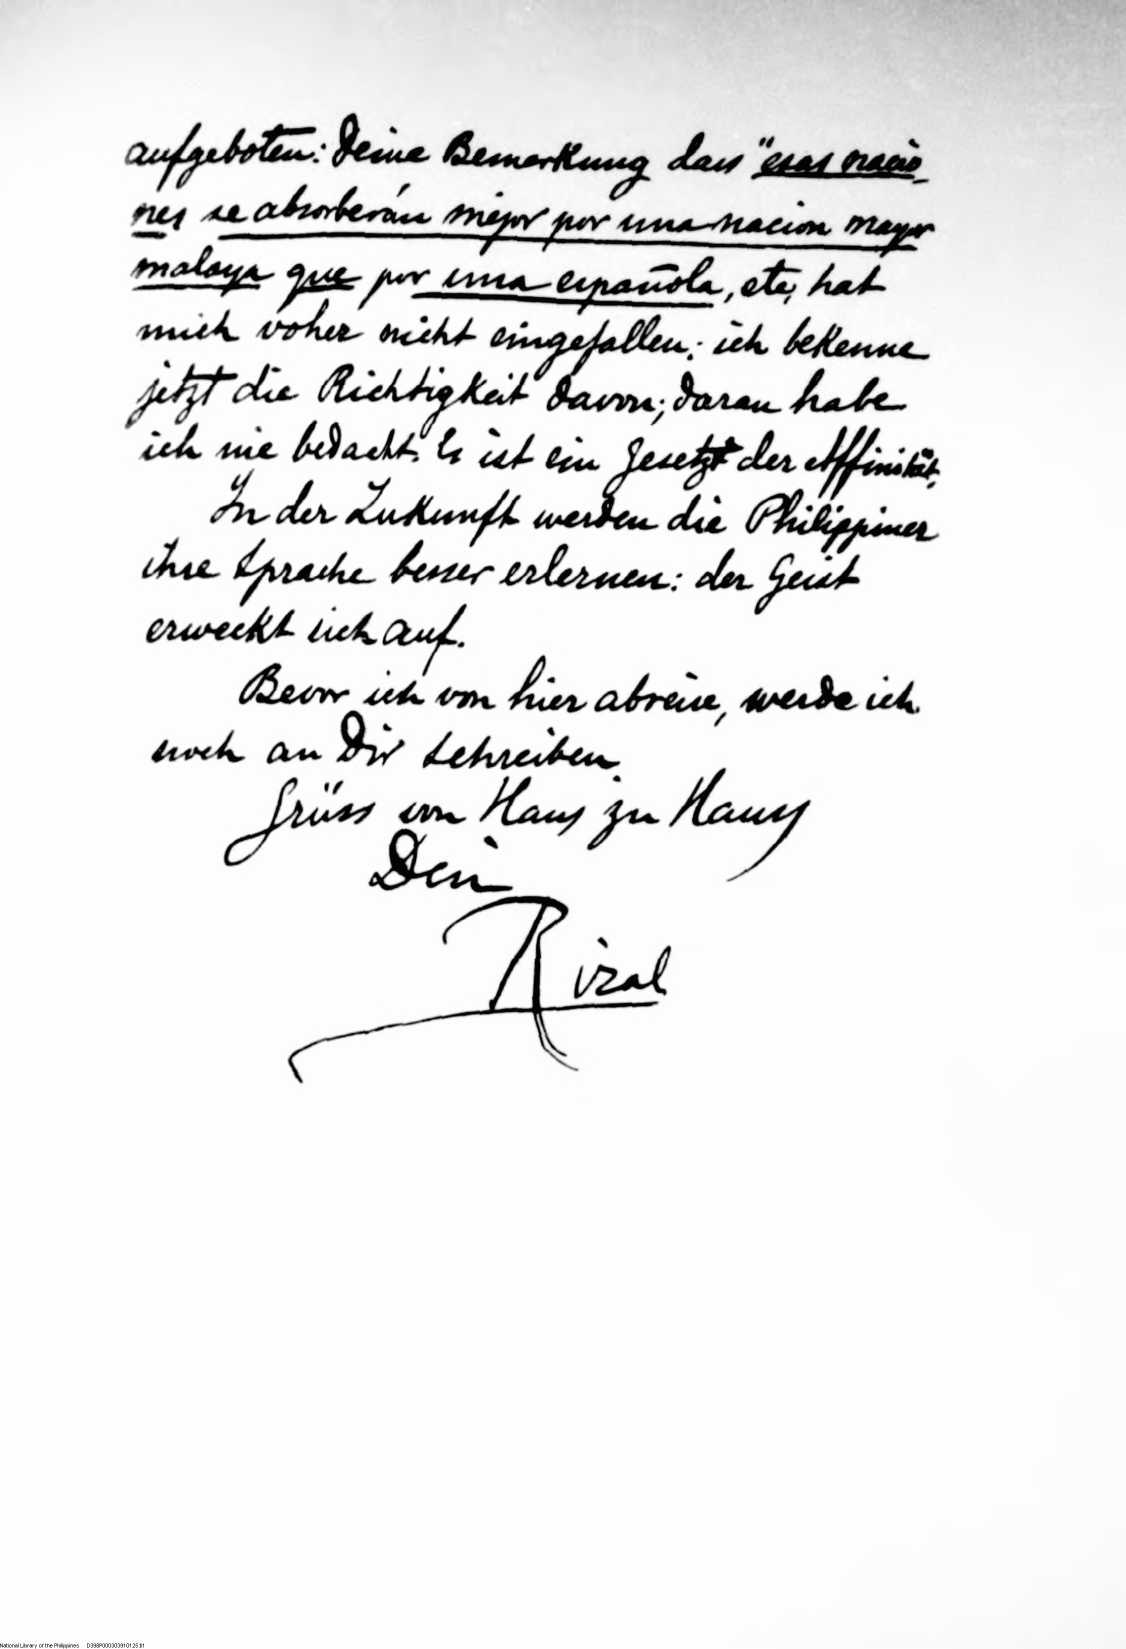 aufgeboten: Deine Bemerkung dass "esas nacio-
nes se absorberán mejor por una nacion mayor
malaya que por una española, etc, hat
mich voher nicht eingefallen; ich bekenne
jetzt die Richtigkeit davon; daran habe
ich nie bedacht. Es ist ein Gesetzt der Affinität.
In der Zukunft werden die Philippiner
ihre Sprache besser erlernen: der Geist
erweckt sich auf.
Bevor ich von hier abreise, werde ich
noch an Dir schreiben.
Grüss von Haus zu Haus
Dein
Rizal
National Library of the Philippines D398P0003039101251t1